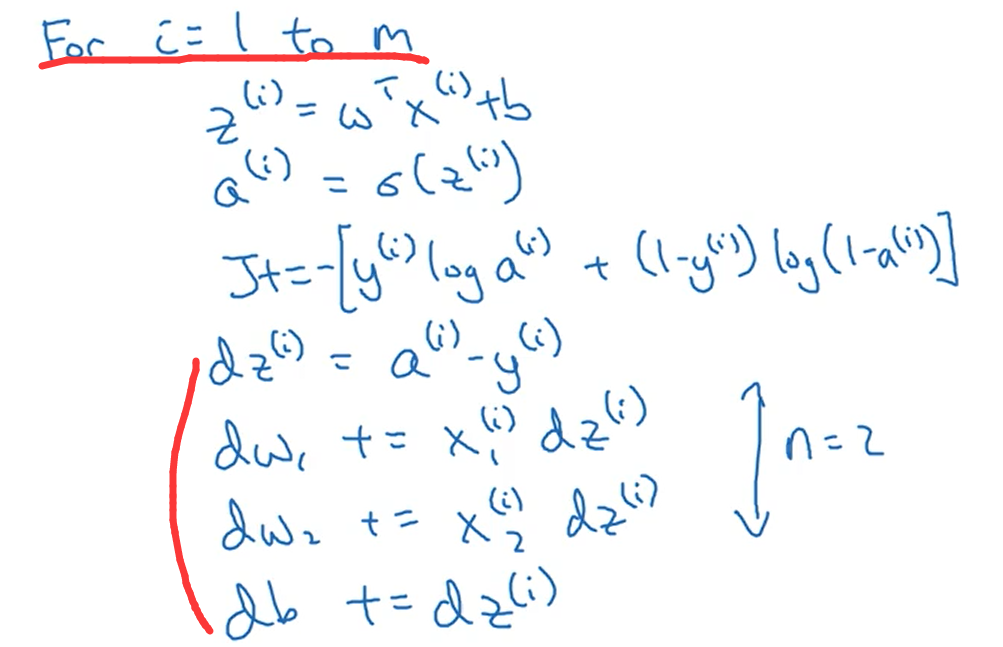 For i = 1 to m
z⁽ⁱ⁾ = ωᵀ x⁽ⁱ⁾ + b
a⁽ⁱ⁾ = σ(z⁽ⁱ⁾)
J += -[y⁽ⁱ⁾ log a⁽ⁱ⁾ + (1-y⁽ⁱ⁾) log(1-a⁽ⁱ⁾)]
dz⁽ⁱ⁾ = a⁽ⁱ⁾ - y⁽ⁱ⁾
dω₁ += x₁⁽ⁱ⁾ dz⁽ⁱ⁾
n = 2
dω₂ += x₂⁽ⁱ⁾ dz⁽ⁱ⁾
db += dz⁽ⁱ⁾